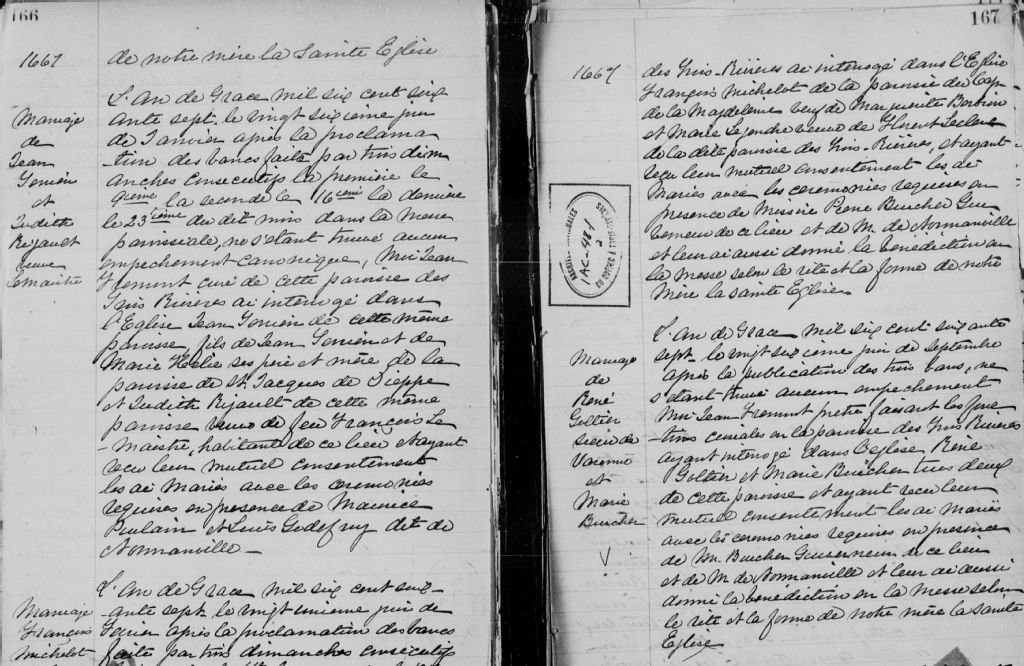 166
1667
de notre mère la Sainte Eglise
Mariage
de
Jean
et
Judith
Rigault
veuve
Lemaistre
L'An de Grace mil six cent soix
ante sept. le vingt sixième jour
de Janvier après la proclama
-tion des bancs faite par trois dim
anches consecutifs la première le
9ième la seconde le 16ieme la derniere
le 23ième du dit mois dans la messe
paroissiale, ne s'étant trouvé aucun
empechement canonique, Moi Jean
Fremont curé de cette paroisse des
Trois Rivieres ai interrogé dans
l'Eglise Jean de cette même
paroisse, fils de Jean et de
Marie ses père et mère de la
paroisse de St. Jacques de Dieppe
et Judith Rigault de cette même
paroisse veuve de feu François Le
-Maistre, habitants de ce lieu et ayant
recu leur mutuel consentement
les ai Mariés avec les ceremonies
requises en presence de Maurice
Poulain et Louis Godefroy dit de
Normanville —
Mariage
François
Michelot
L'An de Grace mil six cent soix-
-ante sept. le vingt unieme jour de
après la proclamation des bancs
faite par trois dimanches consecutifs
167
1667
des Trois-Rivières ai interrogé dans l'Eglise
François Michelot de la paroisse du Cap
de la Magdeleine veuf de Marguerite
et Marie veuve de Florent Leclerc
de la dite paroisse des Trois-Rivieres, et ayant
reçu leur mutuel consentement les ai
Mariés avec les ceremonies requises en
presence de Messire Pierre Boucher Gou
verneur de ce lieu et de M. de Normanville
et leur ai aussi donné la benediction en
la Messe selon le rite et la forme de notre
Mère la sainte Eglise
1AC-481
2
Mariage
de
René
Gottier
sieur de
Varenne
et
Marie
Boucher
V
L'An de Grace mil six cent soix ante
sept. le vingt sixième jour de septembre
après la publication des trois bans, ne
s'étant trouvé aucun empechement
Moi Jean Fremont prêtre faisant les fonc
-tions curiales en la paroisse des Trois Rivieres
ayant interrogé dans l'eglise René
Gottier et Marie Boucher tous deux
de cette paroisse et ayant recu leur
mutuel consentement les ai Mariés
avec les ceremonies requises en presence
de M. Boucher Gouverneur de ce lieu
et de M de Normanville et leur ai aussi
donné la bénédiction en la Messe selon
le rite et la forme de notre mère la sainte
Eglise